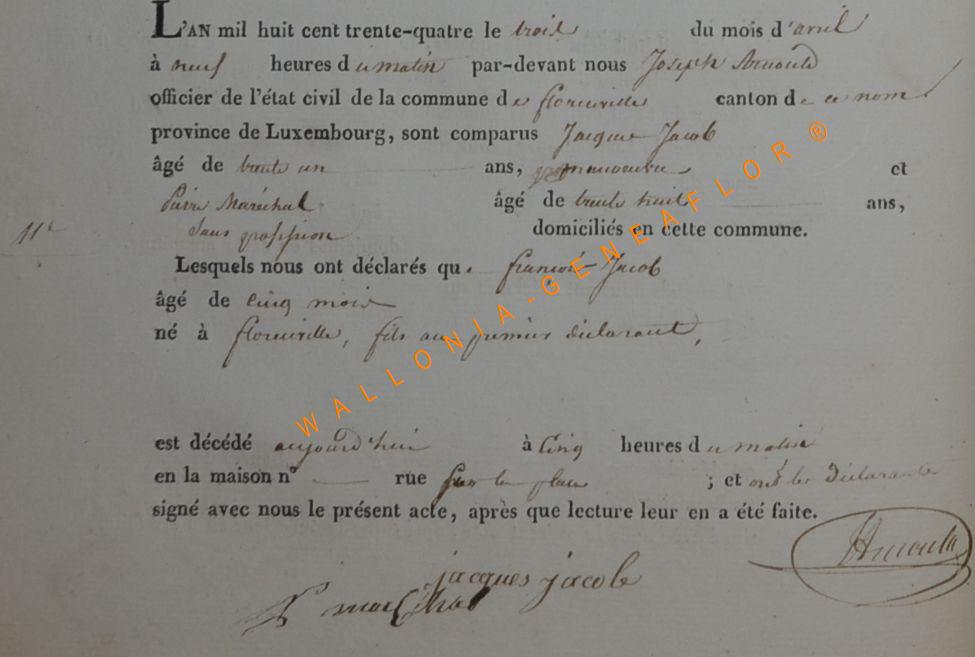 L'AN mil huit cent trente-quatre le trois du mois d'avril
à neuf heures du matin par-devant nous Joseph Arnould
officier de l'état civil de la commune de florenville canton de ce nom
province de Luxembourg, sont comparus Jacque Jacob
âgé de trente un ans, manoeuvre et
Pierre Maréchal âgé de trente huit ans,
11e sans profession domiciliés en cette commune.
Lesquels nous ont déclarés que françois Jacob
âgé de cinq mois
né à florenville, fils au premier déclarant,
est décédé aujourd'hui à cinq heures du matin
en la maison n° rue sur la place ; et ont les déclarants
signé avec nous le présent acte, après que lecture leur en a été faite.
jacques jacob
P marechal
WALLONIA-GENEAFLOR ®